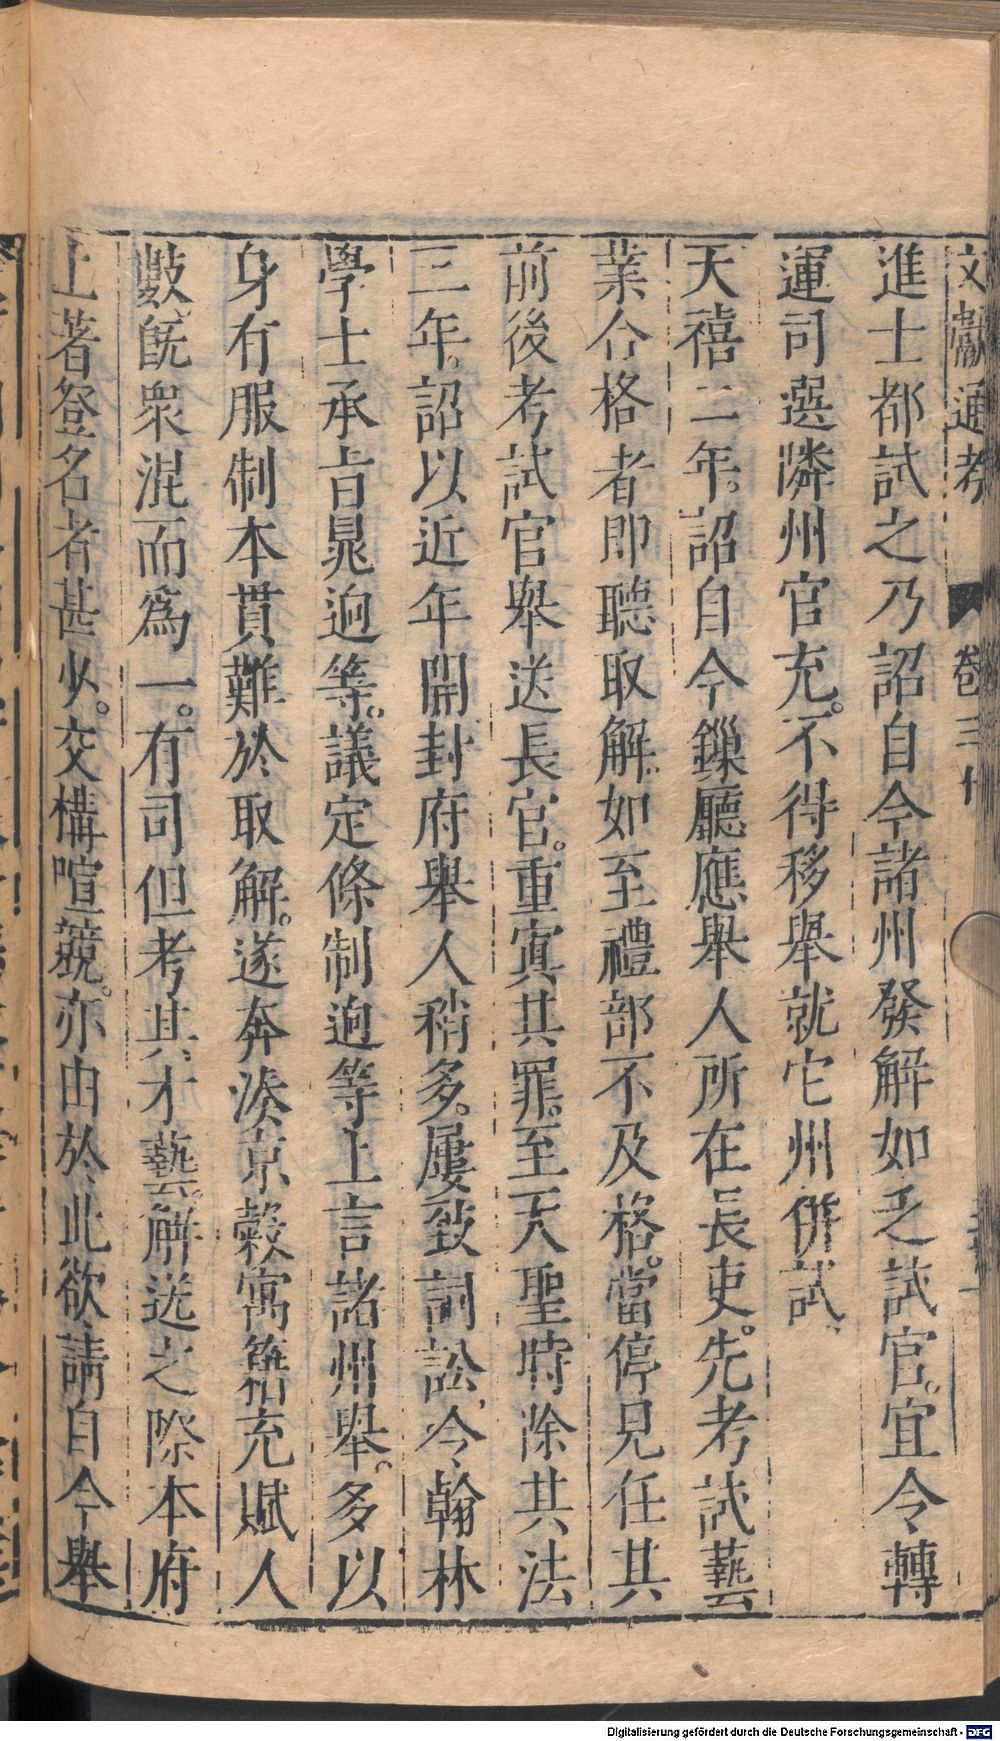 文獻通考 卷三十
進士都試之乃詔自今諸州發解如乏試官。宜令轉
運司選隣州官充。不得移舉就它州併試、
天禧二年。詔自今鏁廳應舉人所在長吏。先考試藝
業合格者即聽取解。如至禮部不及格。當停見任其
前後考試官舉送長官。重寘其罪。至天聖時除其法
三年。詔以近年開封府舉人稍多。屢致詞訟、今翰林
學士承旨晁迥等。議定條制迥等上言諸州舉。多以
身有服制本貫難於取解。遂奔湊京轂寓籍充賦人
數旣衆混而爲一。有司但考其才藝。解送之際本府
土著登名者甚少。交構喧競。亦由於此欲請自今舉
Digitalisierung gefördert durch die Deutsche Forschungsgemeinschaft - DFG